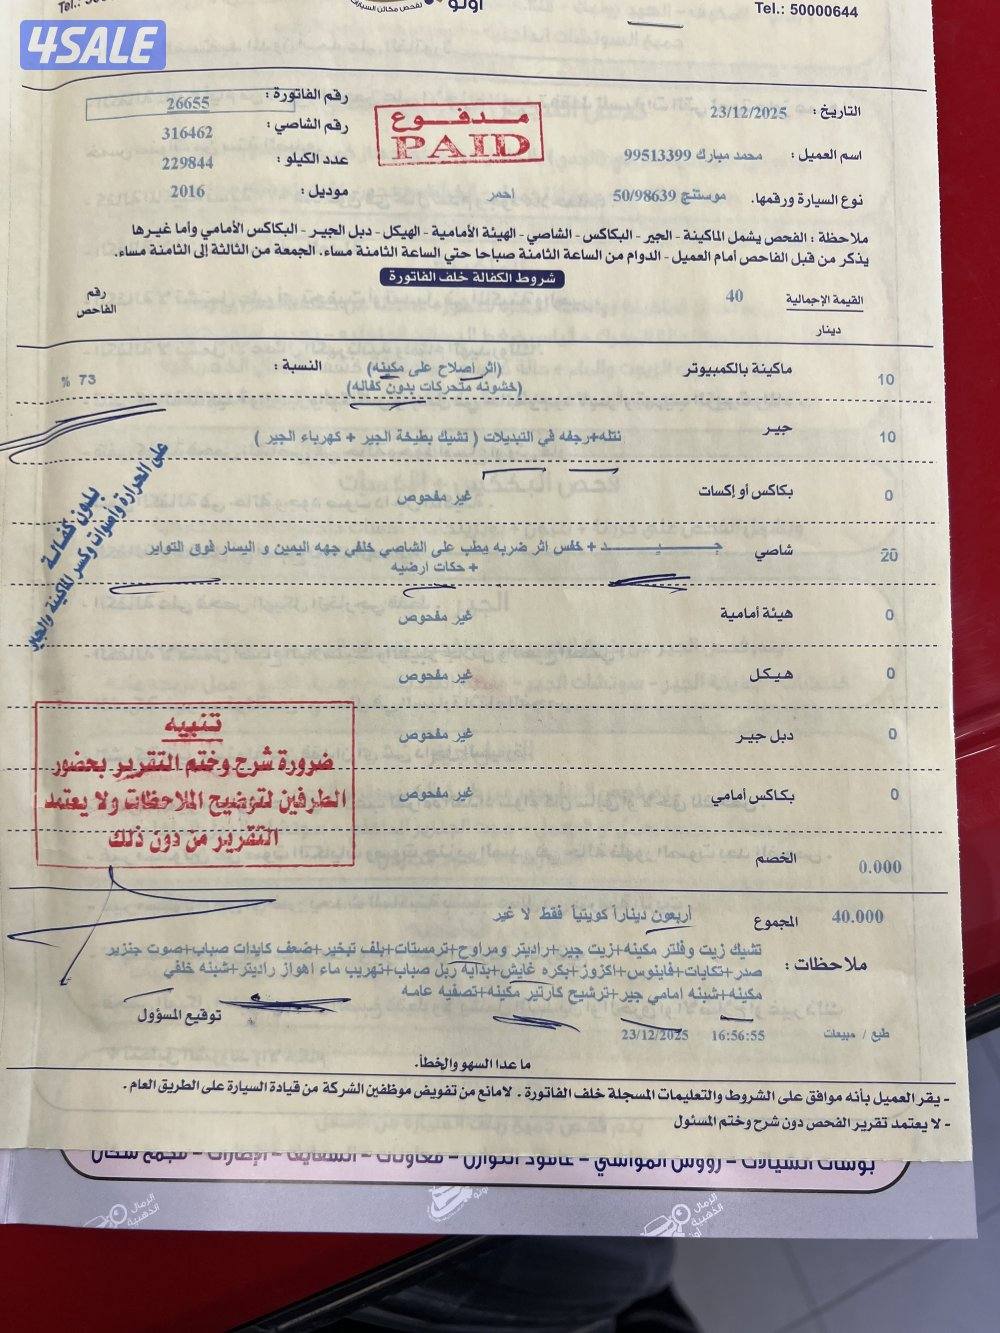 4SALE
Tel.: 50000644
أوتو
رقم الفاتورة : 26655
التاريخ : 23/12/2025
رقم الشاصي : 316462
مدفوع
PAID
اسم العميل : محمد مبارك 99513399
عدد الكيلو : 229844
نوع السيارة ورقمها. موستنج 50/98639 احمر
موديل : 2016
ملاحظة : الفحص يشمل الماكينة - الجير - البكاكس - الشاصي - الهيئة الأمامية - الهيكل - دبل الجير - البكاكس الأمامي وأما غيرها
يذكر من قبل الفاحص أمام العميل - الدوام من الساعة الثامنة صباحا حتي الساعة الثامنة مساء. الجمعة من الثالثة إلى الثامنة مساء.
شروط الكفالة خلف الفاتورة
القيمة الإجمالية 40
دينار
رقم
الفاحص
10 ماكينة بالكمبيوتر (اثر اصلاح على مكينه) النسبة : 73 %
(خشونه متحركات بدون كفاله)
10 جير نتله+رجفه في التبديلات ( تشيك بطيخة الجير + كهرباء الجير )
0 بكاكس أو إكسات غير مفحوص
20 شاصي جـــيـــد + خفس اثر ضربه يطب على الشاصي خلفي جهه اليمين و اليسار فوق التواير
+ حكات ارضيه
0 هيئة أمامية غير مفحوص
0 هيكل غير مفحوص
0 دبل جير غير مفحوص
0 بكاكس أمامي غير مفحوص
بدون كفالة
على الحرارة وأصوات وكسر الماكينة والجير
تنبيه
ضرورة شرح وختم التقرير بحضور
الطرفين لتوضيح الملاحظات ولا يعتمد
التقرير من دون ذلك
0.000 الخصم
40.000 المجموع أربعون ديناراً كويتياً فقط لا غير
ملاحظات : تشيك زيت وفلتر مكينه+زيت جير+راديتر ومراوح+ترمستات+بلف تبخير+ضعف كايدات صباب+صوت جنزير
صدر+تكايات+فاينوس+اكزوز+بكره غايش+بدايه ربل صباب+تهريب ماء اهواز راديتر+شبنه خلفي
مكينه+شبنه امامي جير+ترشيح كارتير مكينه+تصفيه عامه
توقيع المسؤول
طبع / مبيعات 16:56:55 23/12/2025
ما عدا السهو والخطأ.
- يقر العميل بأنه موافق على الشروط والتعليمات المسجلة خلف الفاتورة . لامانع من تفويض موظفين الشركة من قيادة السيارة على الطريق العام .
- لا يعتمد تقرير الفحص دون شرح وختم المسئول
الرمال
الذهبية
أوتو
الرمال
الذهبية